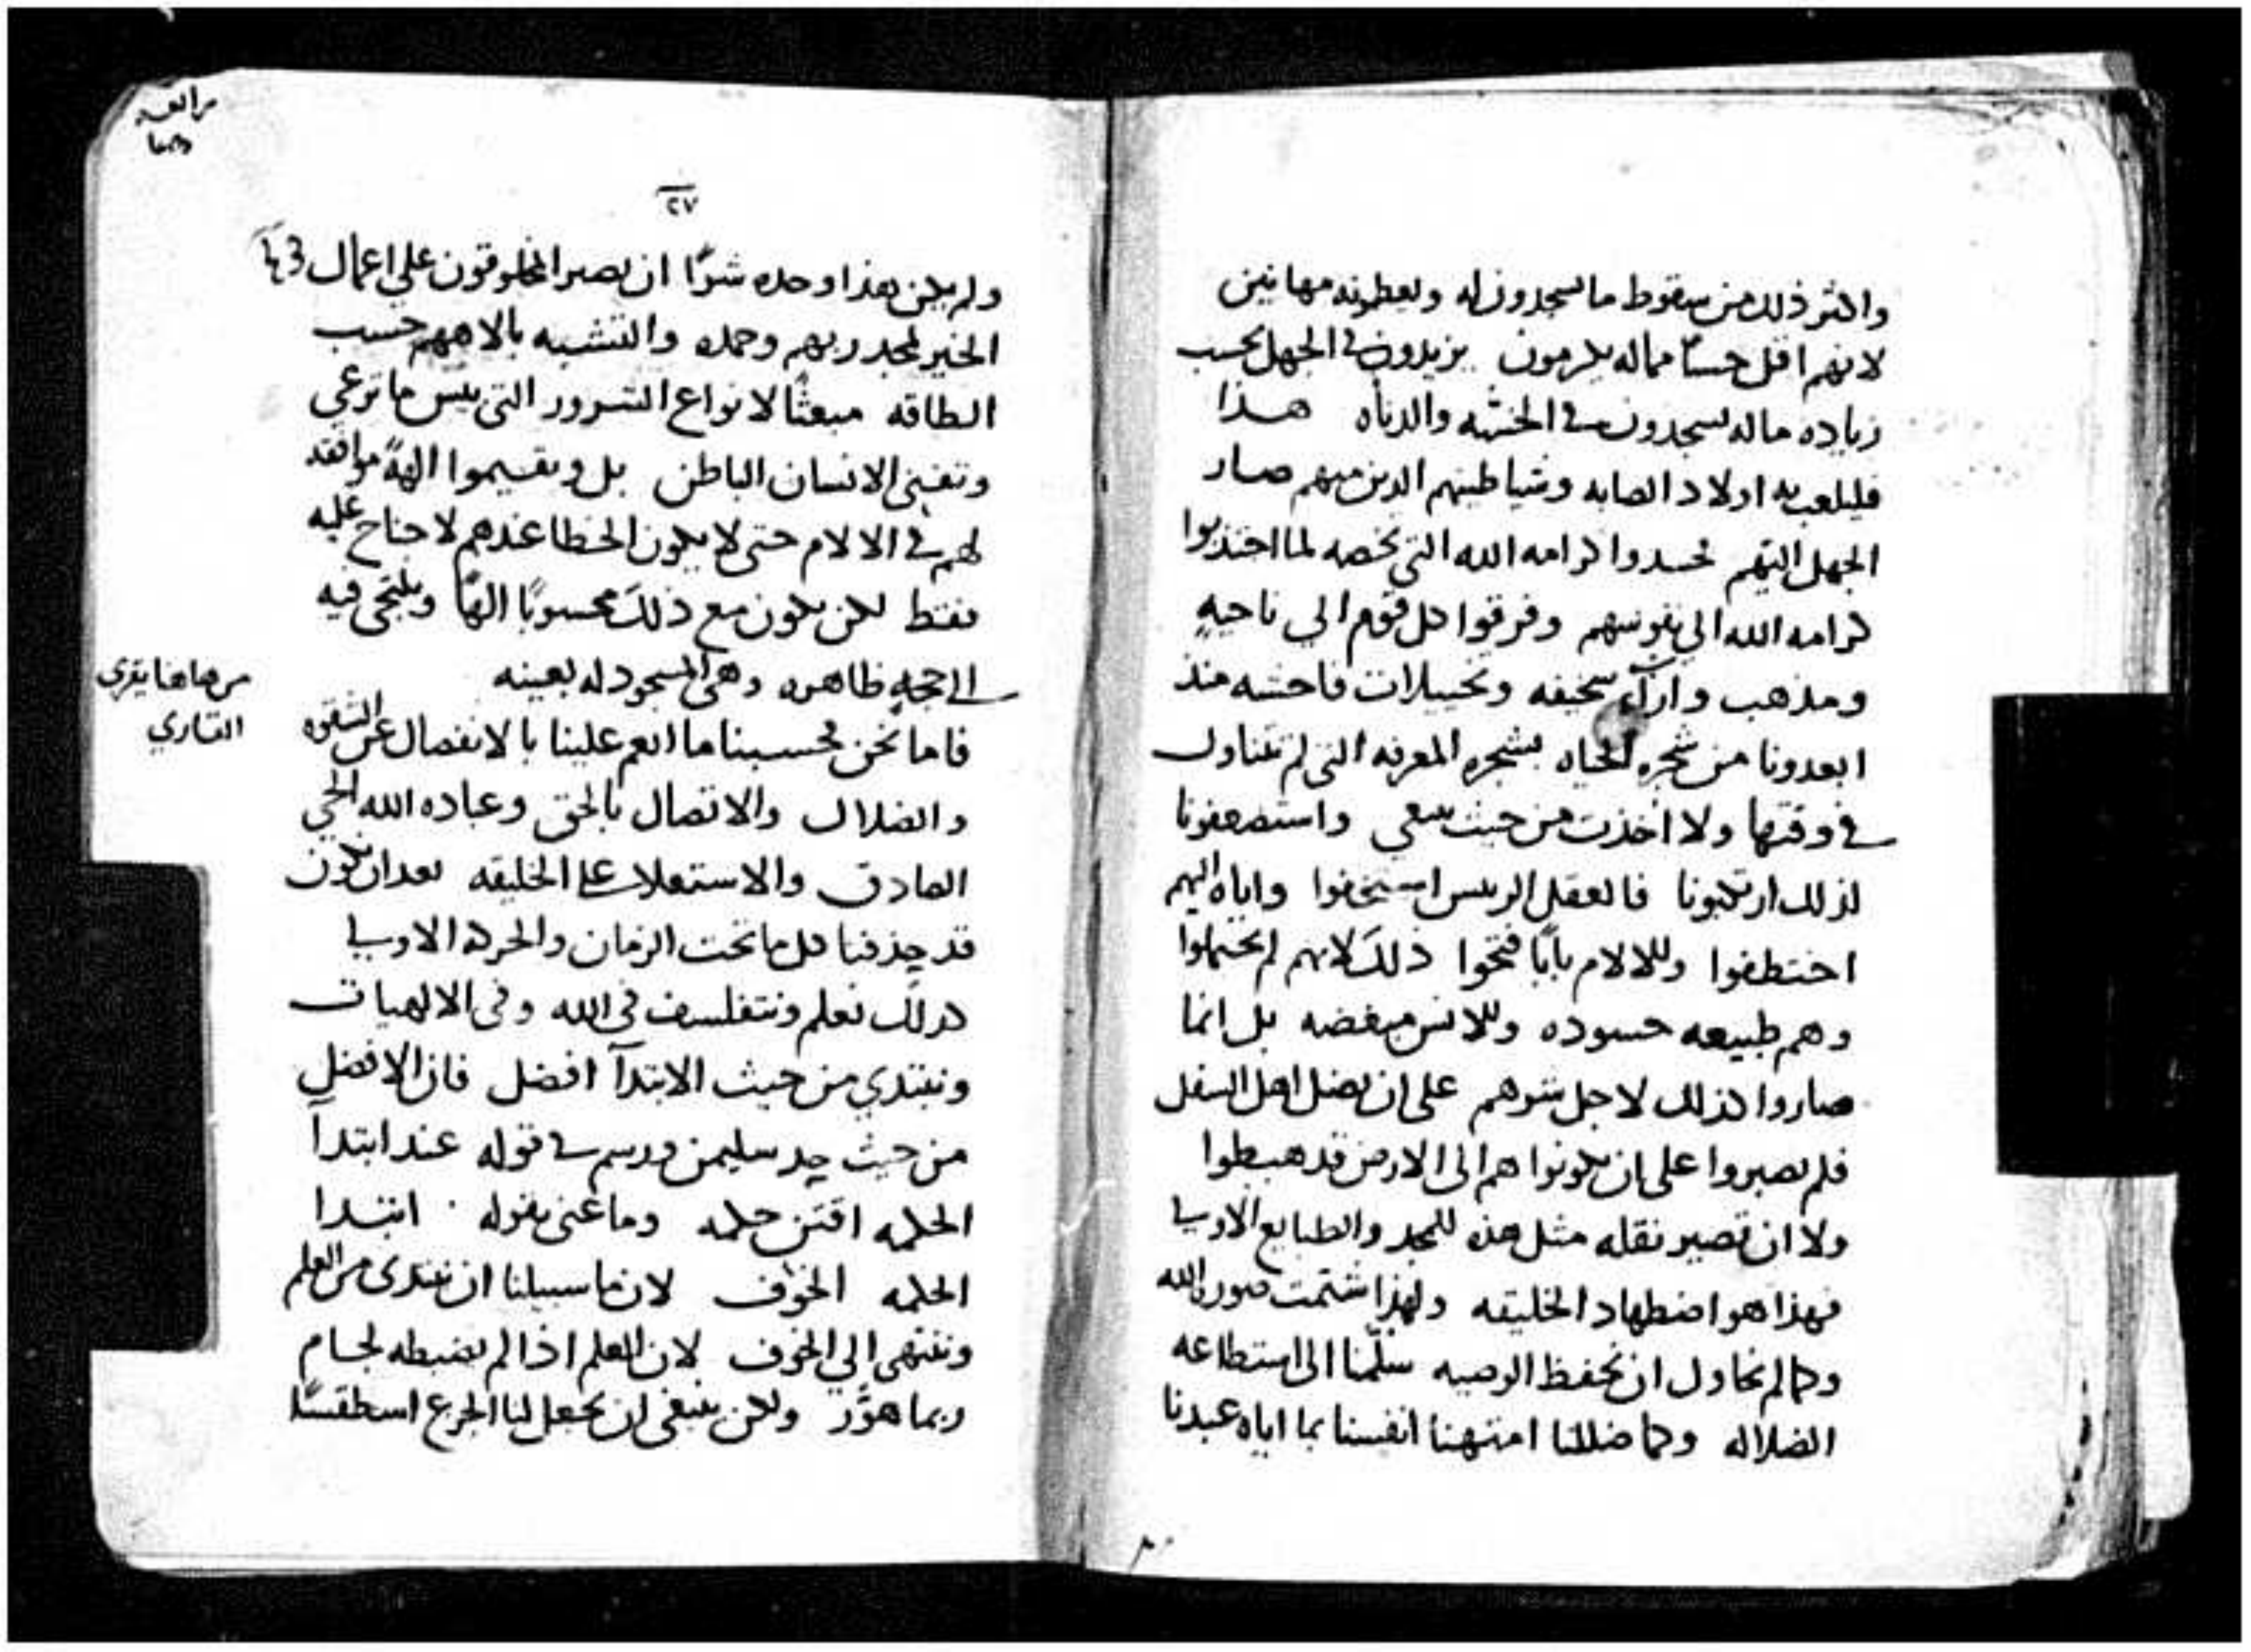 واكثر ذلك من سقوط ما يسجدون له ويعطونه مهانين
لانهم اقل حسا مما له يكرمون يزيدون في الجهل بحسب
زياده ما له يسجدون في الخسه والدناه هذا
فليلعب به اولاد الصابه وشياطينهم الدين منهم صار
الجهل اليهم فحسدوا كرامه الله التي تخصه لما اجتذبوا
كرامه الله الي نفوسهم وفرقوا كل قوم الي ناحيه
ومذهب وارآ سخيفه وتخييلات فاحشه منذ
ابعدونا من شجره الحياه بشجره المعرفه التي لم تتناول
في وقتها ولا اخذت من حيث ينبغي واستضعفونا
لذلك ارتكبونا فالعقل الريس استخفوا واياه اليهم
اختطفوا وللالام بابًا فتحوا ذلك لانهم لم يحتملوا
وهم طبيعه حسوده وللانس مبغضه بل انما
صاروا كذلك لاجل شرهم علي ان يفضل اهل السفل
فلم يصبروا علي ان يكونوا هم الي الارض قد هبطوا
ولا ان تصير نقله مثل هذه للمجد والطبايع الاولي
فهذا هو اضطهاد الخليقه ولهذا شتمت صوره الله
وكما لم نحاول ان نحفظ الوصيه سلمنا الي استطاعه
الضلاله وكما ضللنا امتهنا انفسنا بما اياه عبدنا
٢٧
ولم يكن هذا وحده شرًا ان يصير المخلوقون علي اعمال
الخير لمجد ربهم وحمده والتشبه بالاههم حسب
الطاقه مبعثًا لانواع الشرور التي بيس ما ترعي
وتفني الانسان الباطن بل ويقسيموا الهةً موافقه
لهم في الالام حتي لا يكون الخطا عندهم لا جناح عليه
فقط لكن يكون مع ذلك محسوبًا الهًا ويلتجي فيه
الي حجهٍ ظاهره وهي المسجود له بعينه
من هاهنا يقري
القاري
فاما نحن فحسبنا ما انعم علينا بالانفصال عن الشقوه
والضلال والاتصال بالحق وعباده الله الحي
الصادق والاستعلا علي الخليقه بعد ان نكون
قد جذفنا كل ما تحت الزمان والحركه الاولي
كذلك نعلم ونتفلسف في الله وفي الالهيات
ونبتدي من حيث الابتدآ افضل فان الافضل
من حيث حد سليمن ورسم في قوله عند ابتدآ
الحكمه اقتن حكمه وما عني بقوله ابتدا
الحكمه الخوف لان ما سبيلنا ان نبتدي من العلم
وننتهي الي الخوف لان العلم اذا لم يضبطه لجام
ربما هوَّر ولكن ينبغي ان نجعل لنا الجزع اسطقسًا